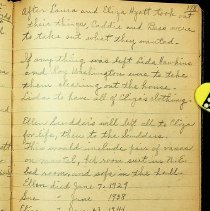 After Laura and Eliza Hyatt took out
their things Caddie and Bess were
to take out what they wanted.
If any thing was left Leda Hawkins
and Roy Washington were to take
them clearing out the house.
Leda to have all of Elizas clothing.
Ellen Scudders will left all to Eliza
for life, then to the Scudders.
This would include pair of vases
on mantel, bed room suit in N.E.
bed room and sofa in the hall.
Ellen died June 7, 1929
Sue " June 1938